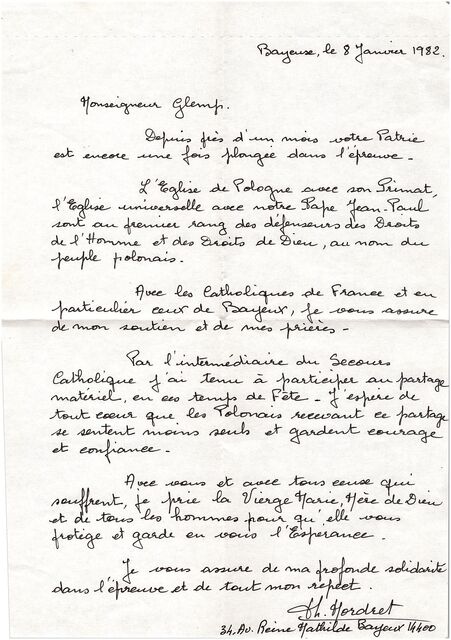 Bayeux, le 8 Janvier 1982.
Monseigneur Glemp.
Depuis près d'un mois votre Patrie
est encore une fois plongée dans l'épreuve.
L'Eglise de Pologne avec son Primat,
l'Eglise universelle avec notre Pape Jean-Paul
sont au premier rang des défenseurs des Droits
de l'Homme et des Droits de Dieu, au nom du
peuple polonais.
Avec les Catholiques de France et en
particulier ceux de Bayeux, je vous assure
de mon soutien et de mes prières.
Par l'intermédiaire du Secours
Catholique j'ai tenu à participer au partage
matériel, en ces temps de Fête. J'espère de
tout cœur que les Polonais recevant ce partage
se sentent moins seuls et gardent courage
et confiance.
Avec vous et avec tous ceux qui
souffrent, je prie la Vierge Marie, Mère de Dieu
et de tous les hommes pour qu'elle vous
protège et garde en vous l'Espérance.
Je vous assure de ma profonde solidarité
dans l'épreuve et de tout mon repect.
Th. Hordret
34, Av. Reine Mathilde Bayeux 14400